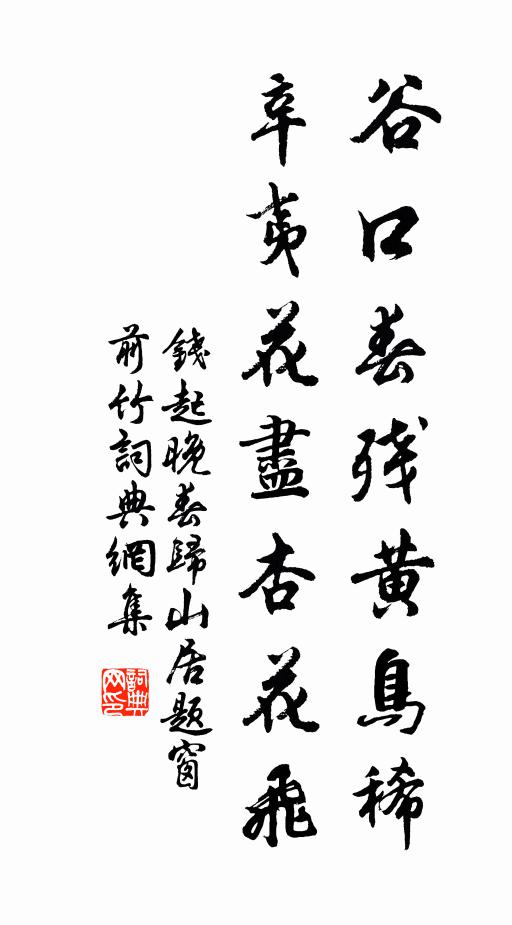 谷口春残黄鳥稀
辛夷花盡杏花飛
錢起晚春歸山居題窗
前竹詞典網集
詞典網印